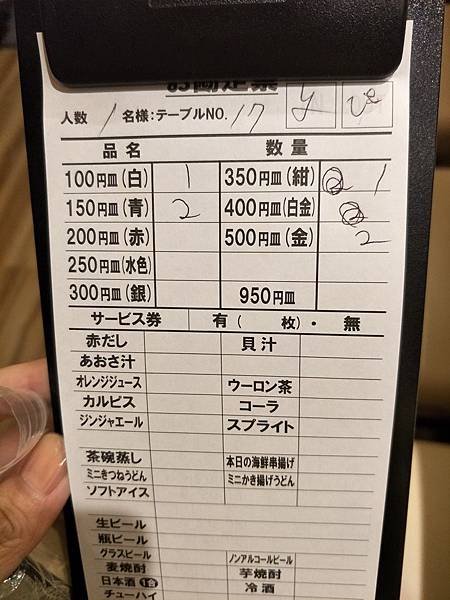 お勘定票
人数 1 名様:テーブルNO. 17 y
品名 数量
100円皿(白) 1 350円皿(紺) 1
150円皿(青) 2 400円皿(白金)
200円皿(赤) 500円皿(金) 2
250円皿(水色)
300円皿(銀) 950円皿
サービス券 有( 枚)・無
赤だし 貝汁
あおさ汁
オレンジジュース ウーロン茶
カルピス コーラ
ジンジャエール スプライト
茶碗蒸し 本日の海鮮串揚げ
ミニきつねうどん ミニかき揚げうどん
ソフトアイス
生ビール
瓶ビール
グラスビール ノンアルコールビール
麦焼酎 芋焼酎
日本酒 1合 冷酒
チューハイ